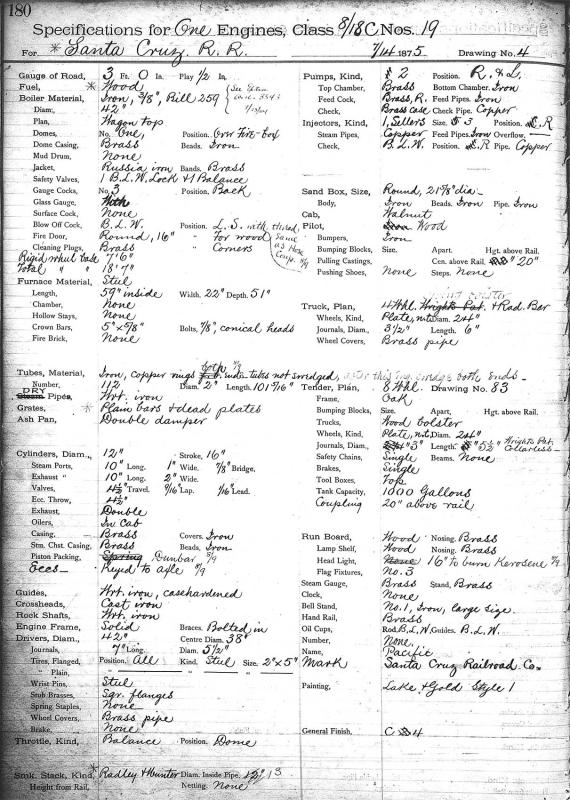 180
Specifications for One Engines, Class 8/18C Nos. 19
For Santa Cruz R. R. 7/14 1875 Drawing No. 4
Gauge of Road, 3 Ft. 0 In. Play 1/2 In.
Fuel, * Wood
Boiler Material, Iron, 3/8", Bill 259
Diam., 42"
Plan, Wagon top
Domes, No. One, Position. Over Fire-box
Dome Casing, Brass Beads. Iron
Mud Drum, None
Jacket, Russia iron Bands. Brass
Safety Valves, 1 B.L.W. Lock & 1 Balance
Gauge Cocks, No. 3 Position. Back
Glass Gauge,
Surface Cock, None
Blow Off Cock, B.L.W. Position. L.S. with thread
Fire Door, Round, 16" " For wood
Cleaning Plugs, Brass " Corners
same as Hose Coup.
Rigid wheel base 7' 6"
Total " " 18' 7"
Furnace Material, Steel
Length, 59" inside Width. 22" Depth. 51"
Chamber, None
Hollow Stays, None
Crown Bars, 5" x 5/8" Bolts, 7/8", conical heads
Fire Brick, None
Tubes, Material, Iron, copper rings both ends tubes not swedged, after this eng. swedge both ends
Number, 112 Diam. 2" Length. 101 5/16"
DRY Steam Pipes, Wrt. iron
Grates, * Plain bars & dead plates
Ash Pan, Double damper
Cylinders, Diam., 12" Stroke, 16"
Steam Ports, 10" Long. 1" Wide. 7/8" Bridge,
Exhaust " 10" Long. 2" Wide.
Valves, 4 1/2" Travel. 9/16" Lap. 1/16" Lead.
Ecc. Throw, 4 1/2"
Exhaust, Double
Oilers, In Cab
Casing, Brass Covers. Iron
Stm. Chst. Casing, Brass Beads, Iron
Piston Packing, Spring Dunbar 5/9
Eccs Keyed to axle 8/9
Guides, Wrt. iron, casehardened
Crossheads, Cast iron
Rock Shafts, Wrt. iron
Engine Frame, Solid Braces. Bolted in
Drivers, Diam., 42" Centre Diam. 38"
Journals, 7" Long. Diam. 5 1/2"
Tires, Flanged, Position. All Kind. Steel Size. 2" x 5"
" Plain, " " "
Wrist Pins, Steel
Stub Brasses, Sqr. flanges
Spring Staples, None
Wheel Covers, Brass pipe
Brake, None
Throttle, Kind, Balance Position. Dome
Smk. Stack, Kind, * Radley & Hunter Diam. Inside Pipe. 13
Height from Rail, Netting. None
Pumps, Kind, 2 Position. R. & L.
Top Chamber, Brass Bottom Chamber. Iron
Feed Cock, Brass, R. Feed Pipes. Iron
Check, Brass case Check Pipe. Copper
Injectors, Kind, 1, Sellers Size. 3 Position. R
Steam Pipes, Copper Feed Pipes. Iron Overflow.
Check, B.L.W. Position. R Pipe. Copper
Sand Box, Size, Round, 21 5/8" dia.
Body, Iron Beads. Iron Pipe. Iron
Cab, Walnut
Pilot, Iron Wood
Bumpers, Iron
Bumping Blocks, Size. Apart. Hgt. above Rail.
Pulling Castings, Cen. above Rail. 20"
Pushing Shoes, None Steps. None
Truck, Plan, 4 Whl. Wrights Pat. & Rad. Bar
Wheels, Kind, Plate, Diam. 24"
Journals, Diam., 3 1/2" Length. 6"
Wheel Covers, Brass pipe
Tender, Plan, 8 Whl. Drawing No. 83
Frame, Oak
Bumping Blocks, Size. Apart, Hgt. above Rail.
Trucks, Wood bolster
Wheels, Kind, Plate, Diam. 24"
Journals, Diam., 3" Length. 5 1/2" Wrights Pat. Collarless
Safety Chains, Single Beams. None
Brakes, Single
Tool Boxes, Top
Tank Capacity, 1000 Gallons
Coupling 20" above rail
Run Board, Wood Nosing. Brass
Lamp Shelf, Wood Nosing. Brass
Head Light, None 16" to burn Kerosene
Flag Fixtures, No. 3
Steam Gauge, Brass Stand, Brass
Clock, None
Bell Stand, No. 1, Iron, large size.
Hand Rail, Brass
Oil Cups, Rod. B.L.W. Guides. B.L.W.
Number, None
Name, Pacific
Mark Santa Cruz Railroad Co.
Painting, Lake & Gold Style 1
General Finish, C 4